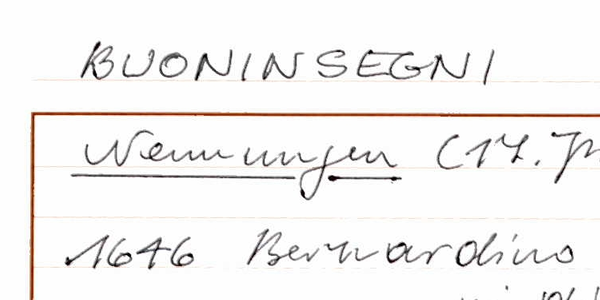 BUONINSEGNI
Nennungen (17. Jh
1646 Bernardino